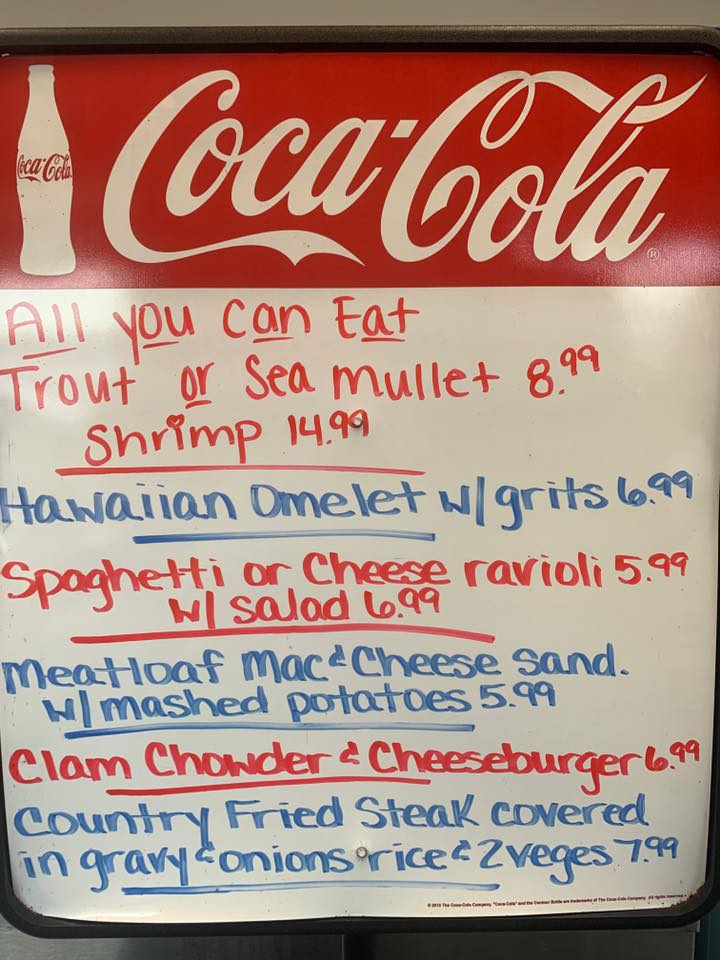 Coca-Cola
Coca-Cola®
All you can Eat
Trout or Sea mullet 8.99
Shrimp 14.99
Hawaiian Omelet w/grits 6.99
Spaghetti or Cheese ravioli 5.99
w/ salad 6.99
Meatloaf Mac & Cheese sand.
w/ mashed potatoes 5.99
Clam Chowder & Cheeseburger 6.99
Country Fried Steak covered
in gravy & onions rice & 2 veges 7.99
The Coca-Cola Company. "Coca-Cola" and the Contour Bottle are trademarks of The Coca-Cola Company. All rights reserved.